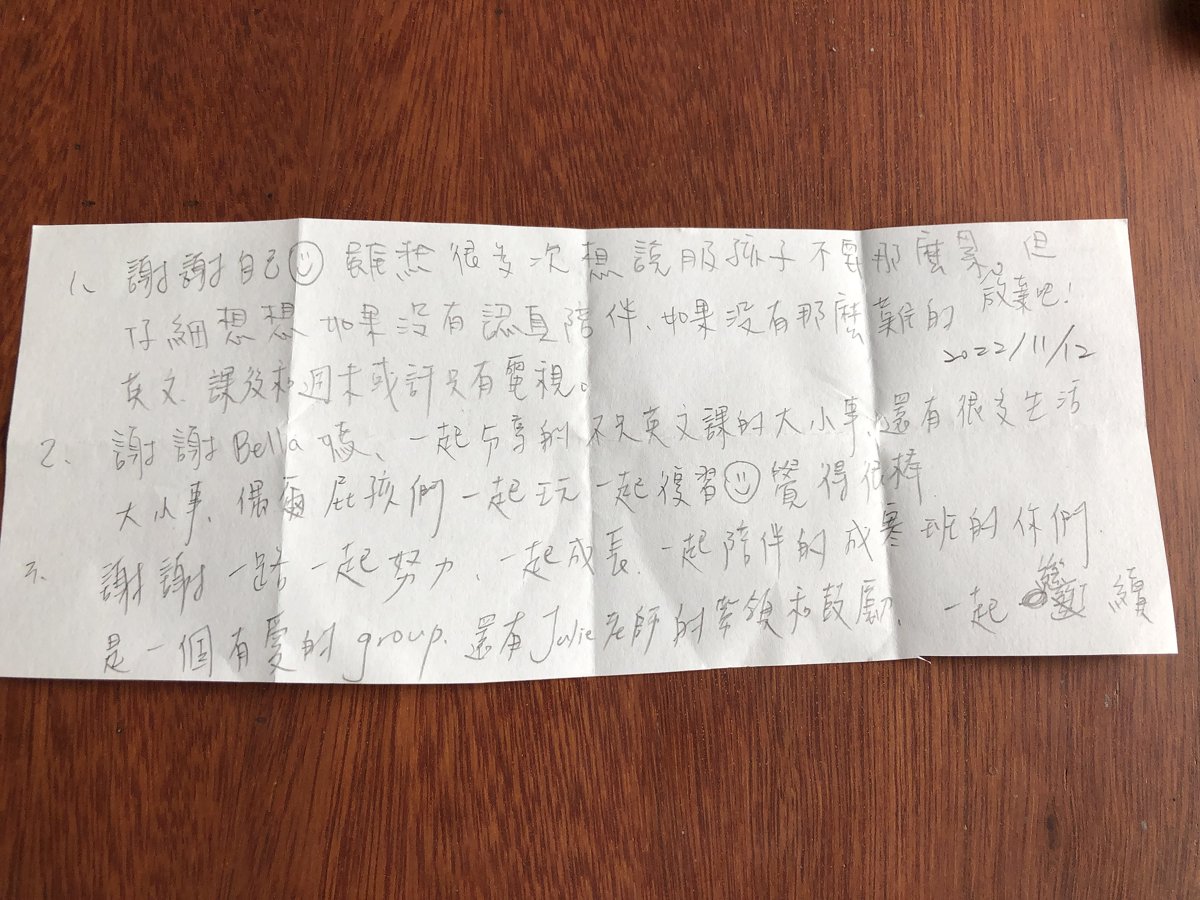 1、謝謝自己☺雖然很多次想說服孩子不要那麼累。但
放棄吧!
仔細想想如果沒有認真陪伴、如果沒有那麼難的
2022/11/12
英文.課後和週末或許只有電視。
2、謝謝Bella媽、一起分享的不只英文課的大小事、還有很多生活
大小事、偶爾屁孩們一起玩一起復習☺覺得很棒
3、謝謝一路一起努力、一起成長.一起陪伴的成寒班的你們.
是一個有愛的group.還有Julie老師的帶領和鼓勵.一起繼續